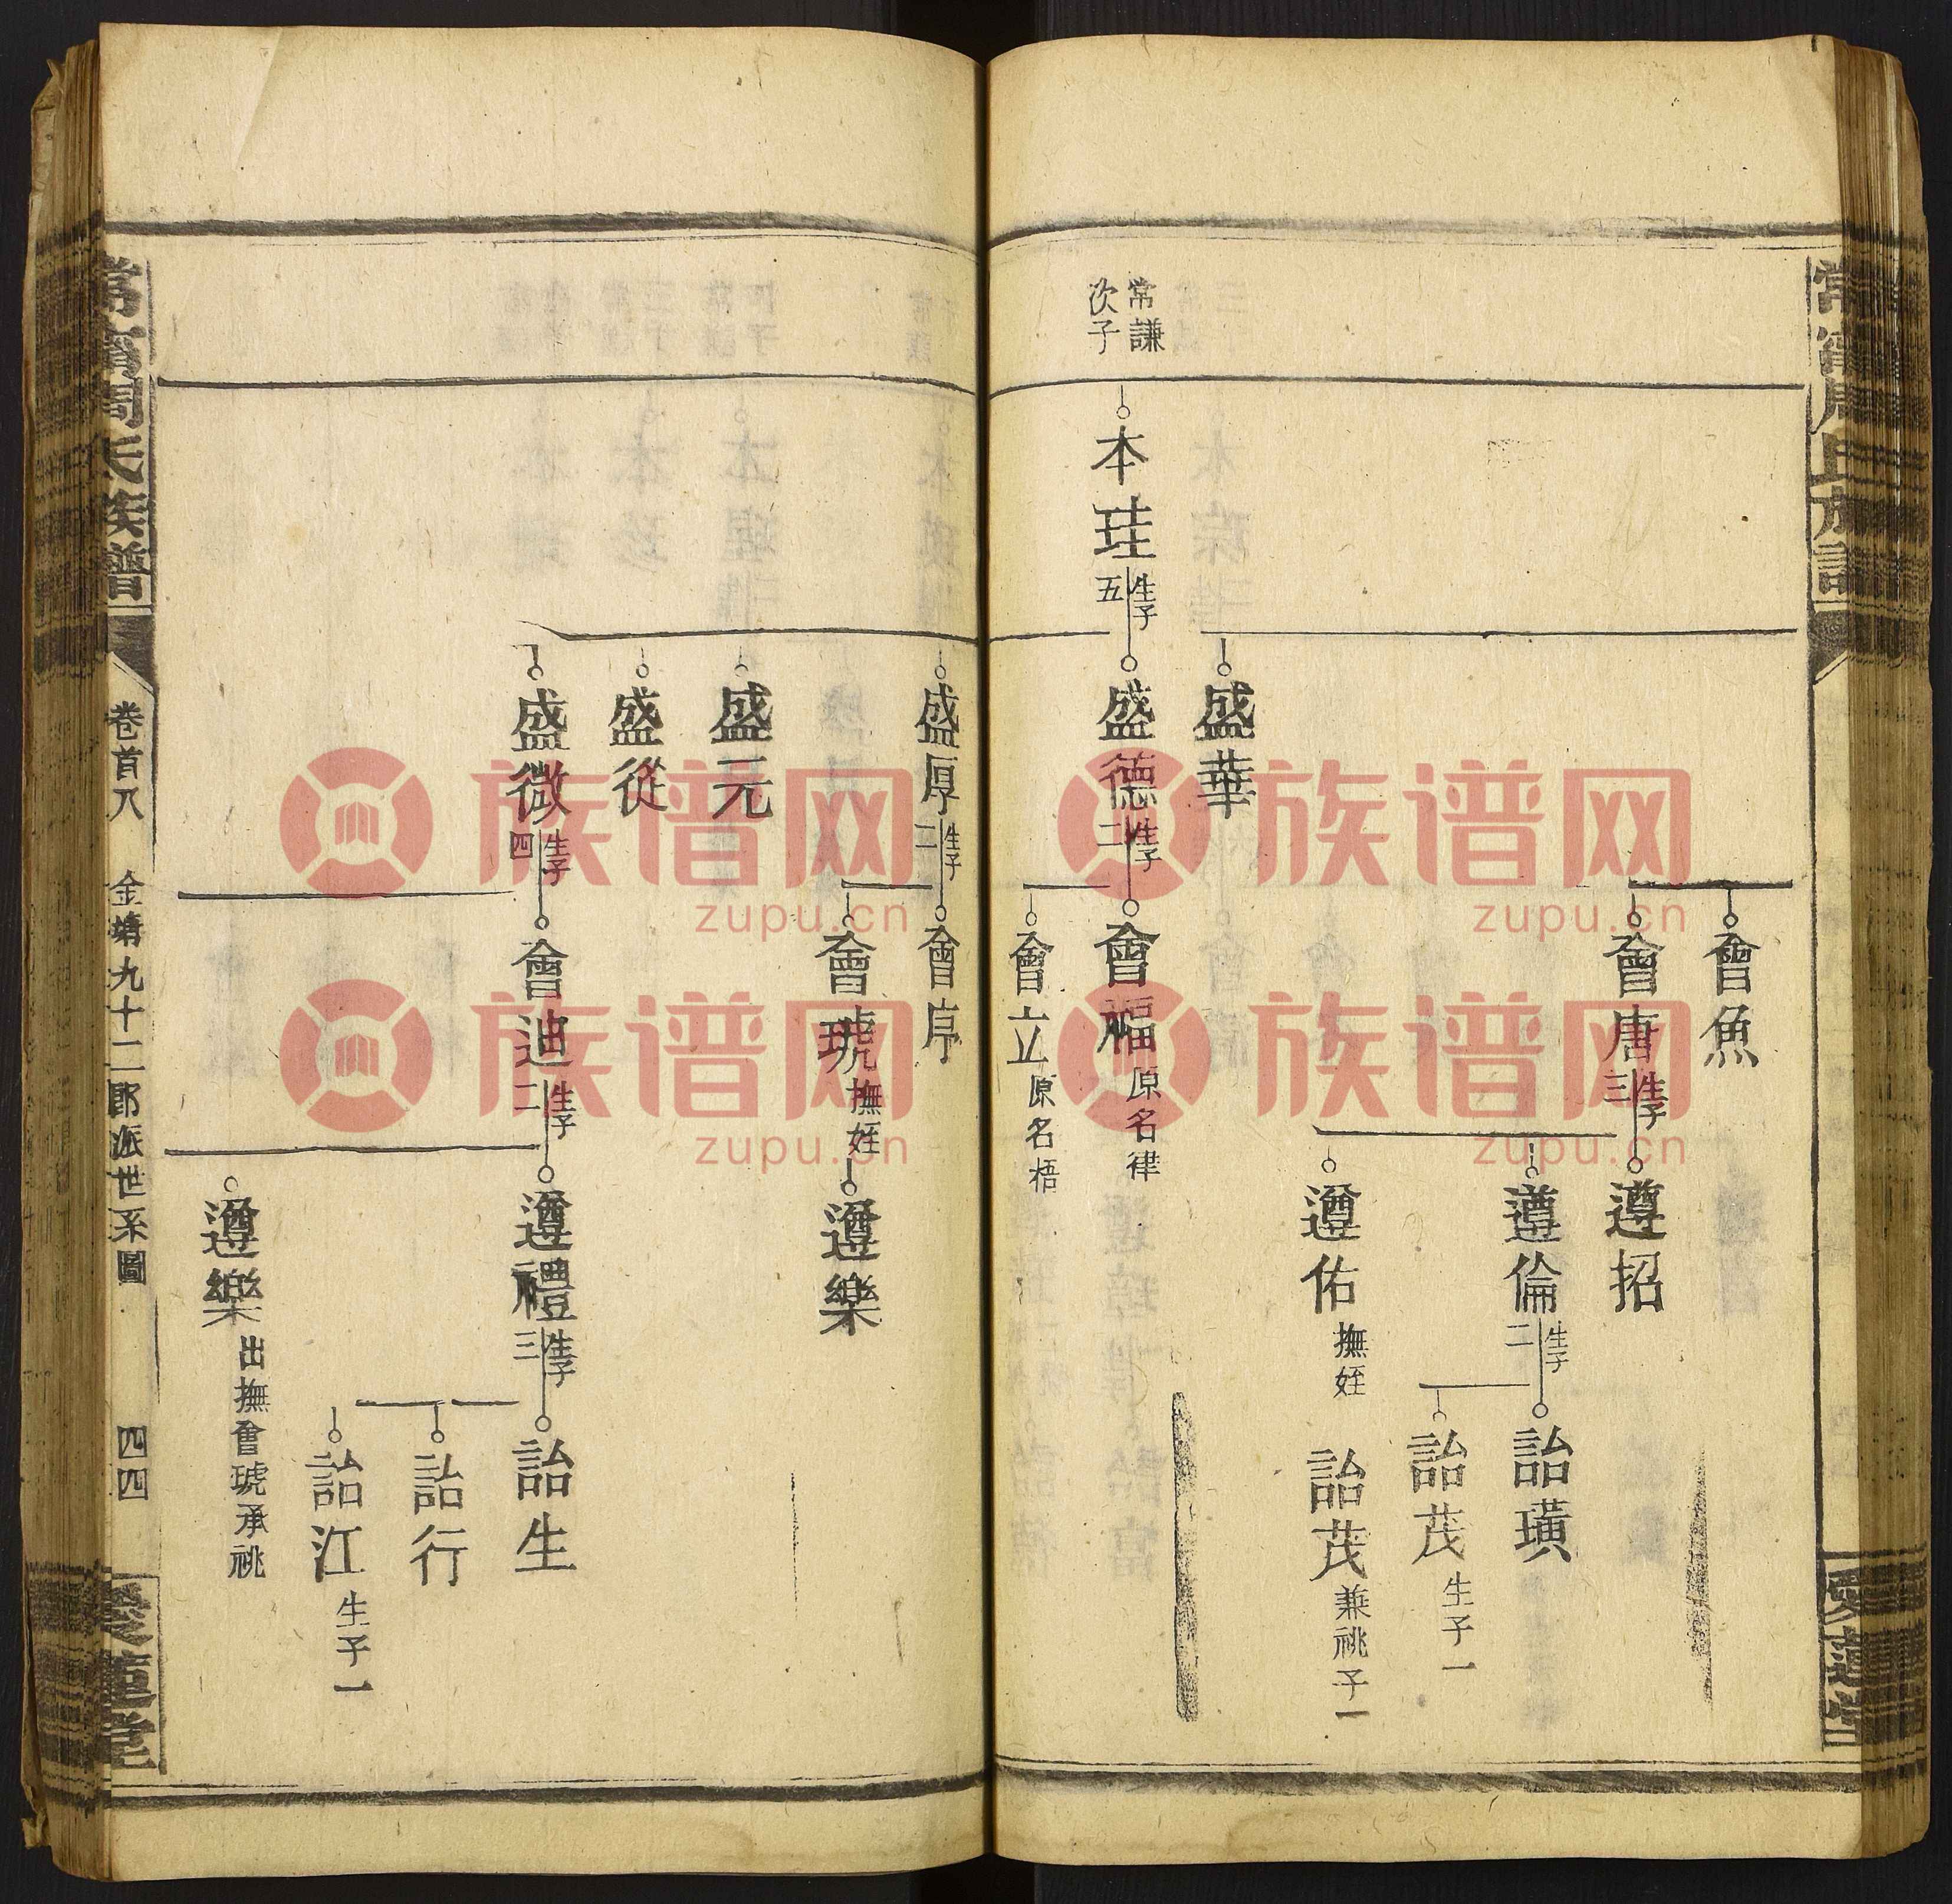 會魚
會唐 生子三
遵招
遵倫 生子二
詒璜
詒茂 生子一
遵佑 撫姪
詒茂 兼祧子一
盛華
常謙
次子
本珪 生子五
盛德 生子二
會福 原名律
會立 原名梧
盛厚 生子二
會序
會琥 撫姪
遵樂
盛元
盛從
盛微 生子四
會迪 生子二
遵禮 生子三
詒生
詒行
詒江 生子一
遵樂 出撫會琥承祧
常甯周氏族譜
卷首八
金靖九十二郎派世系圖
四四
愛蓮堂
族谱网
zupu.cn
族谱网
zupu.cn
族谱网
zupu.cn
族谱网
zupu.cn